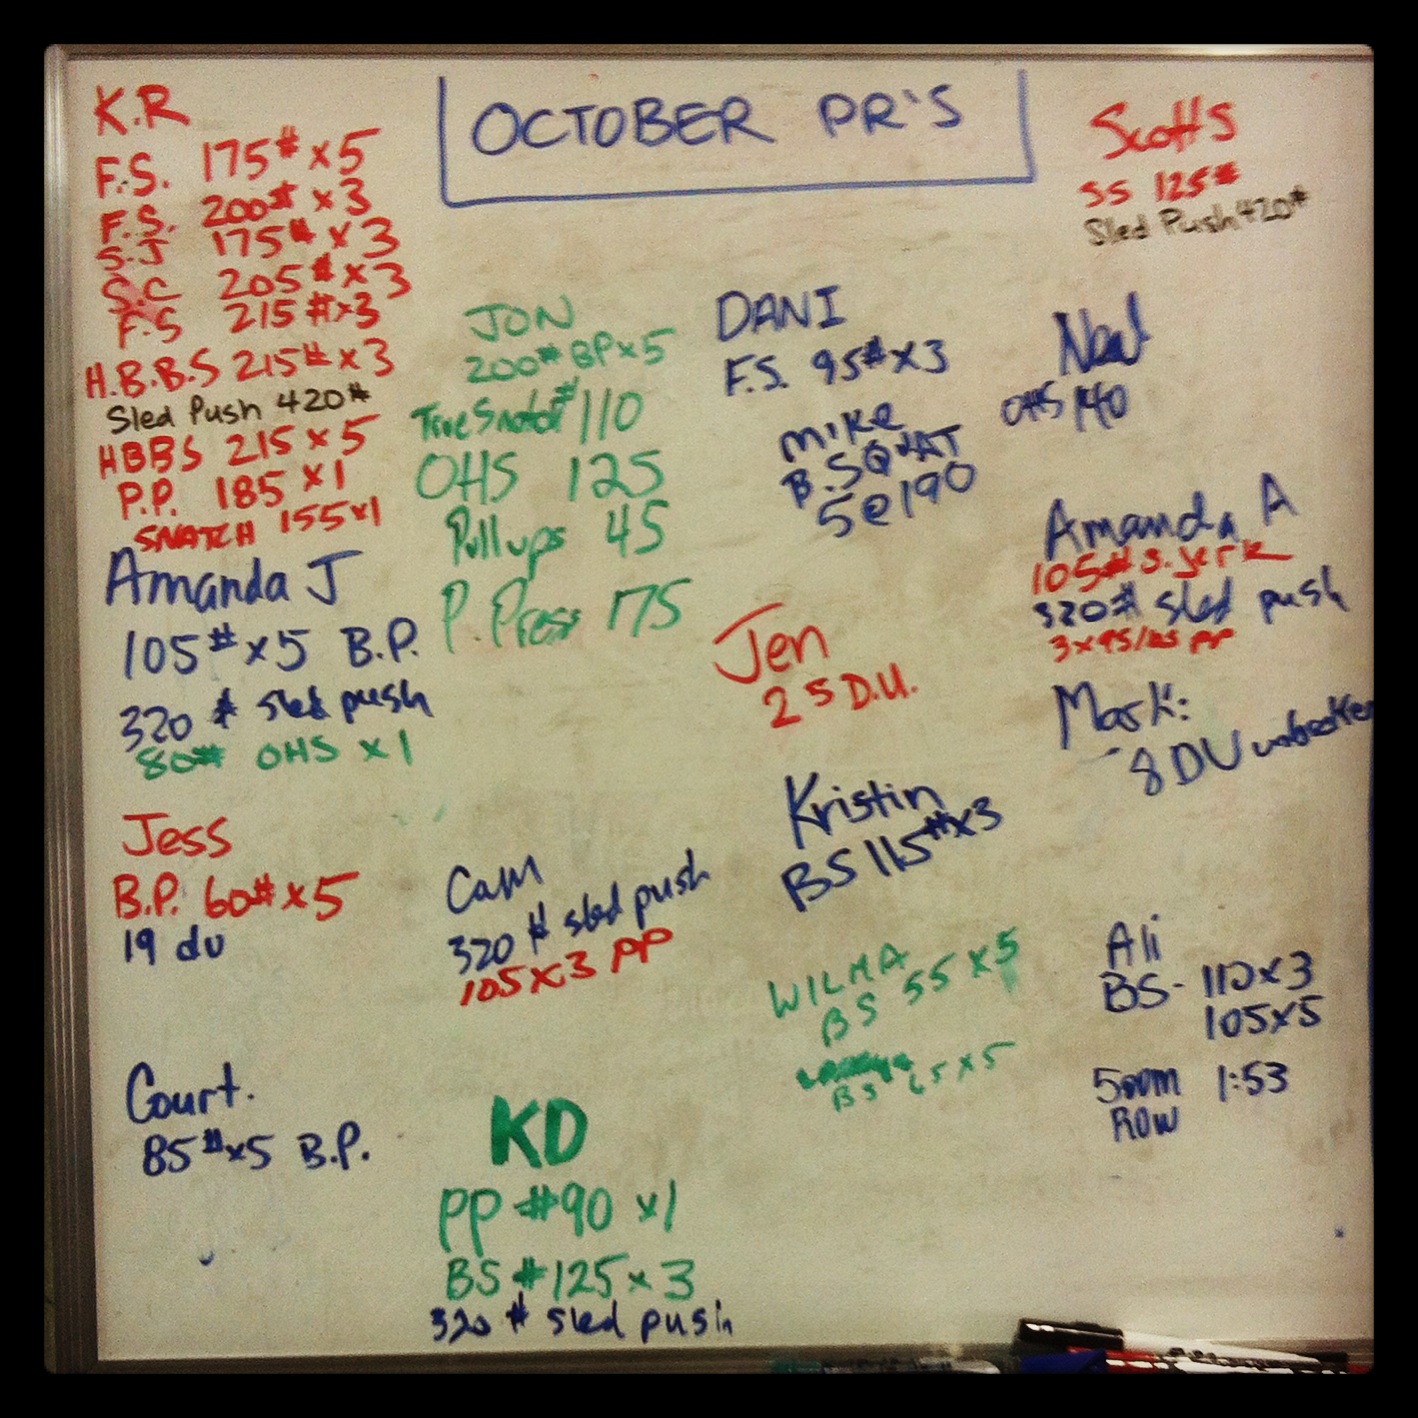 OCTOBER PR'S
K.R
F.S. 175# x 5
F.S. 200# x 3
S.J 175# x 3
S.C 205# x 3
F.S 215# x 3
H.B.B.S 215# x 3
Sled Push 420#
HBBS 215 x 5
P.P. 185 x 1
SNATCH 155 x 1
Amanda J
105# x 5 B.P.
320 # sled push
80# OHS x 1
Jess
B.P. 60# x 5
19 du
Court.
85# x 5 B.P.
JON
200# BP x 5
True Snatch # 110
OHS 125
Pullups 45
P. Press 175
Cam
320 # sled push
105 x 3 PP
KD
PP #90 x 1
BS #125 x 3
320 # sled push
DANI
F.S. 95# x 3
MIKE
B. SQUAT
5 @ 190
Jen
25 D.U.
Kristin
BS 115# x 3
WILMA
BS 55 x 5
BS 65 x 5
Scott S
SS 125#
Sled Push 420#
Neal
OHS 140
Amanda A
105# s. jerk
320# sled push
3 x 95/ PP
Mark:
8 DU unbroken
Ali
BS- 110 x 3
105 x 5
500m 1:53
ROW